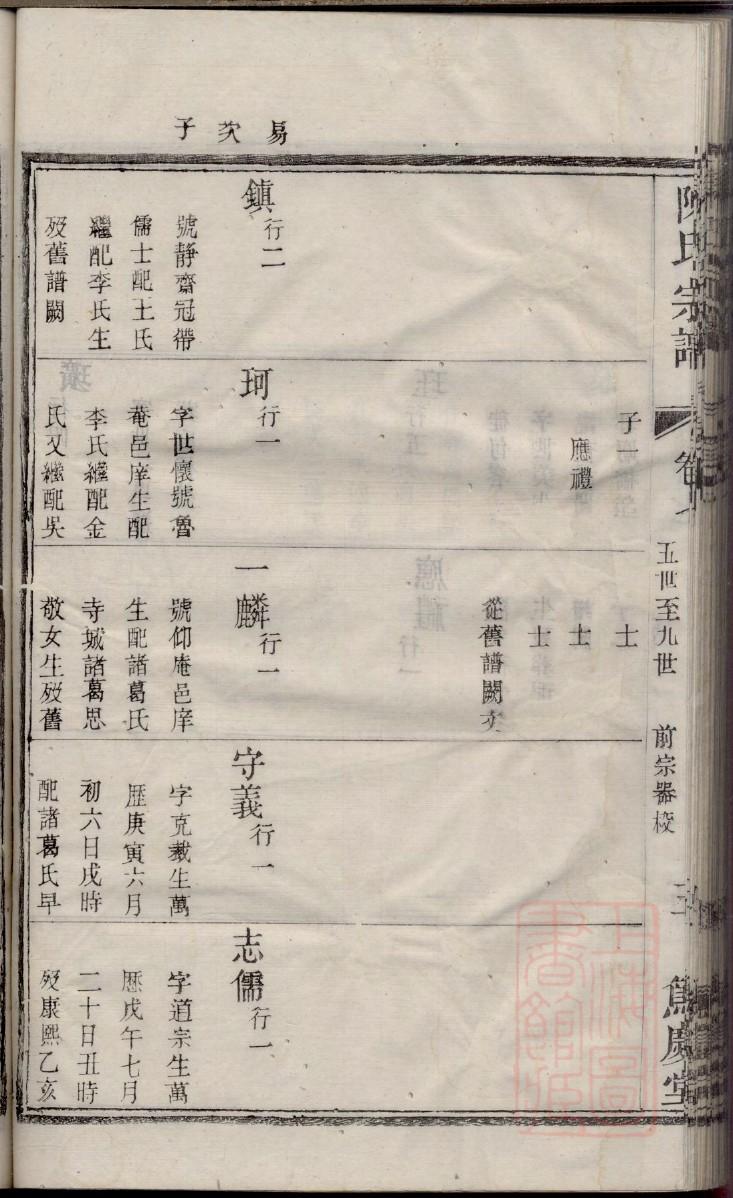 易次子
陳氏宗譜
卷七
五世至九世
前宗器校
鎮行二
號靜齋冠帶
儒士配王氏
繼配李氏生
歿舊譜闕
子一
應禮
珂行一
字世懷號魯
菴邑庠生配
李氏繼配金
氏又繼配吳
士
士
士
從舊譜闕文
一麟行一
號仰庵邑庠
生配諸葛氏
寺城諸葛思
敬女生歿舊
守義行一
字克裁生萬
歷庚寅六月
初六日戌時
配諸葛氏早
志儒行一
字道宗生萬
歷戊午七月
二十日丑時
歿康熙乙亥
上海圖書館藏